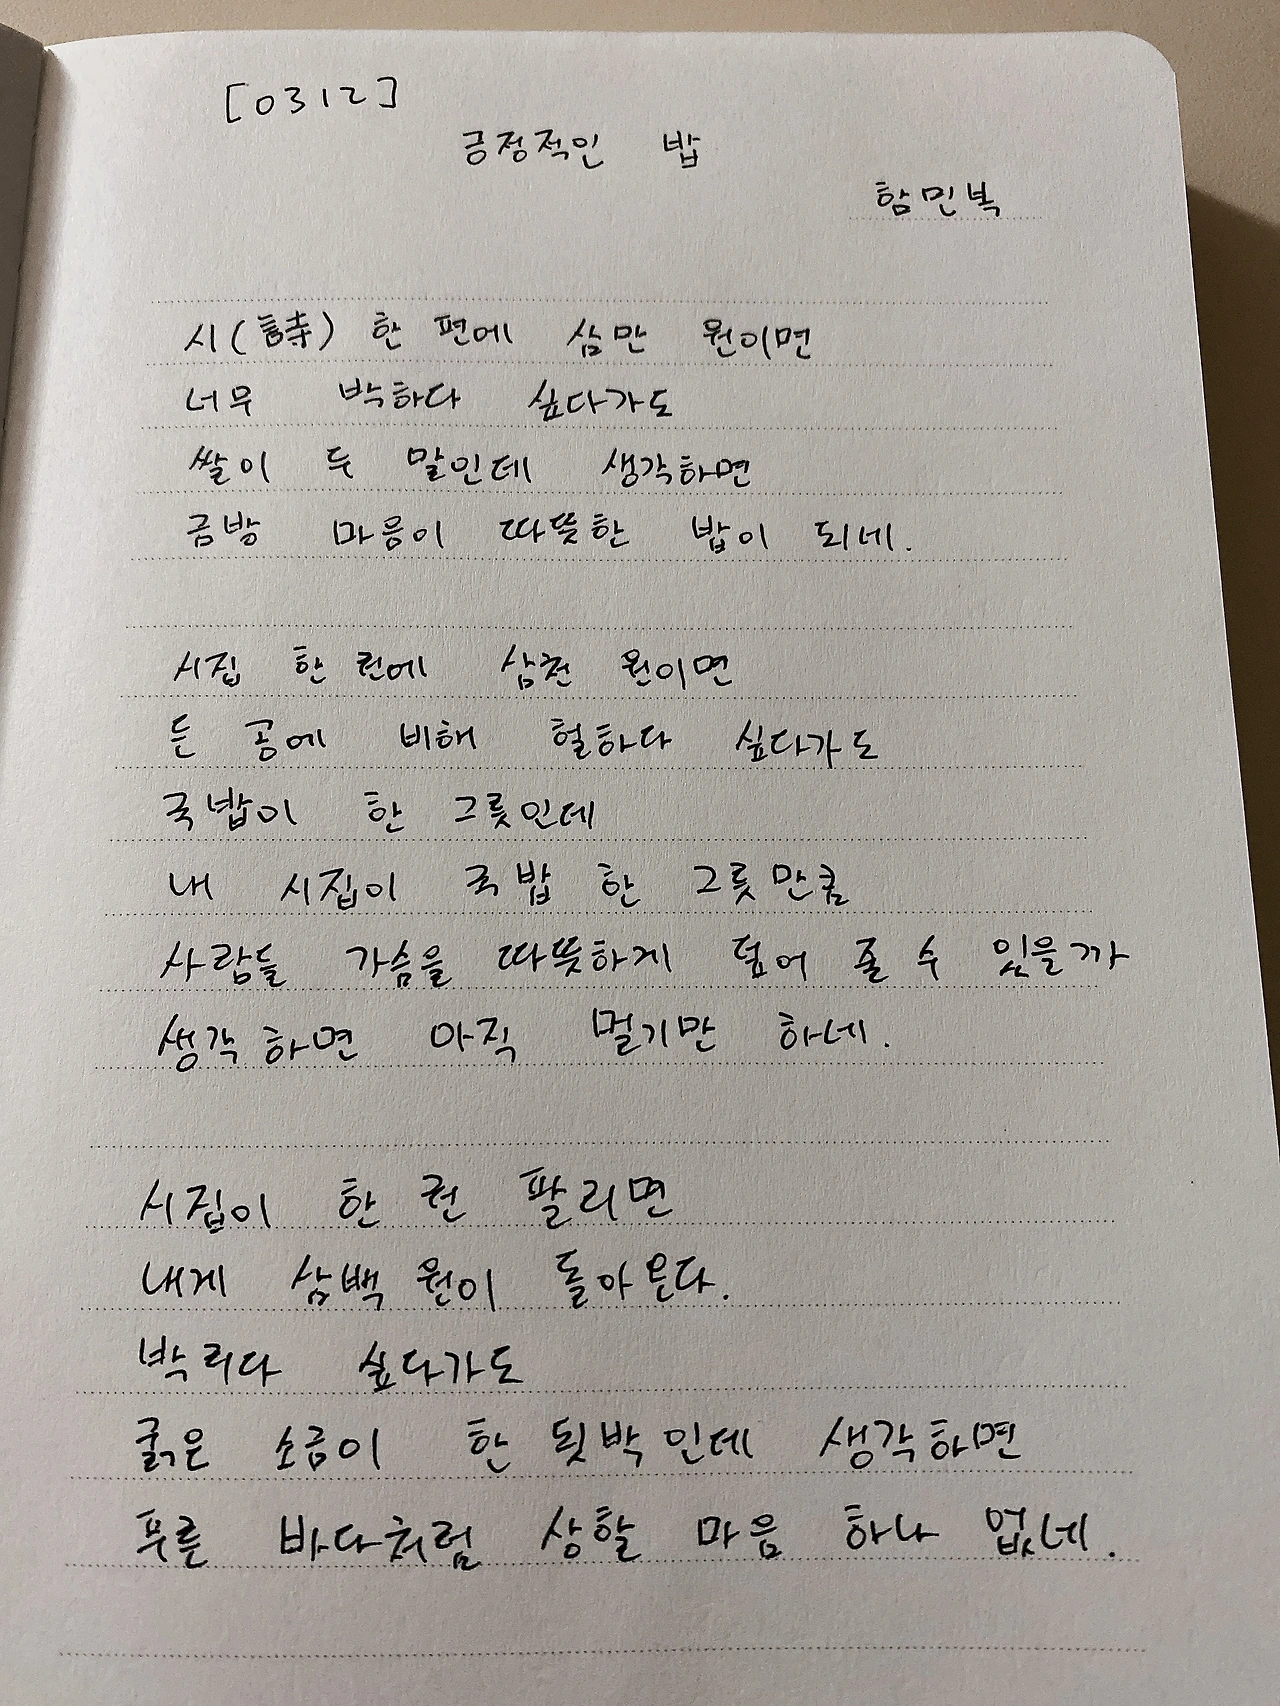 [0312]
긍정적인 밥
함민복
시(詩) 한 편에 삼만 원이면
너무 박하다 싶다가도
쌀이 두 말인데 생각하면
금방 마음이 따뜻한 밥이 되네.
시집 한 권에 삼천 원이면
든 공에 비해 헐하다 싶다가도
국밥이 한 그릇인데
내 시집이 국밥 한 그릇만큼
사람들 가슴을 따뜻하게 덮어 줄 수 있을까
생각하면 아직 멀기만 하네.
시집이 한 권 팔리면
내게 삼백 원이 돌아온다.
박리다 싶다가도
굵은 소금이 한 됫박인데 생각하면
푸른 바다처럼 상할 마음 하나 없네.